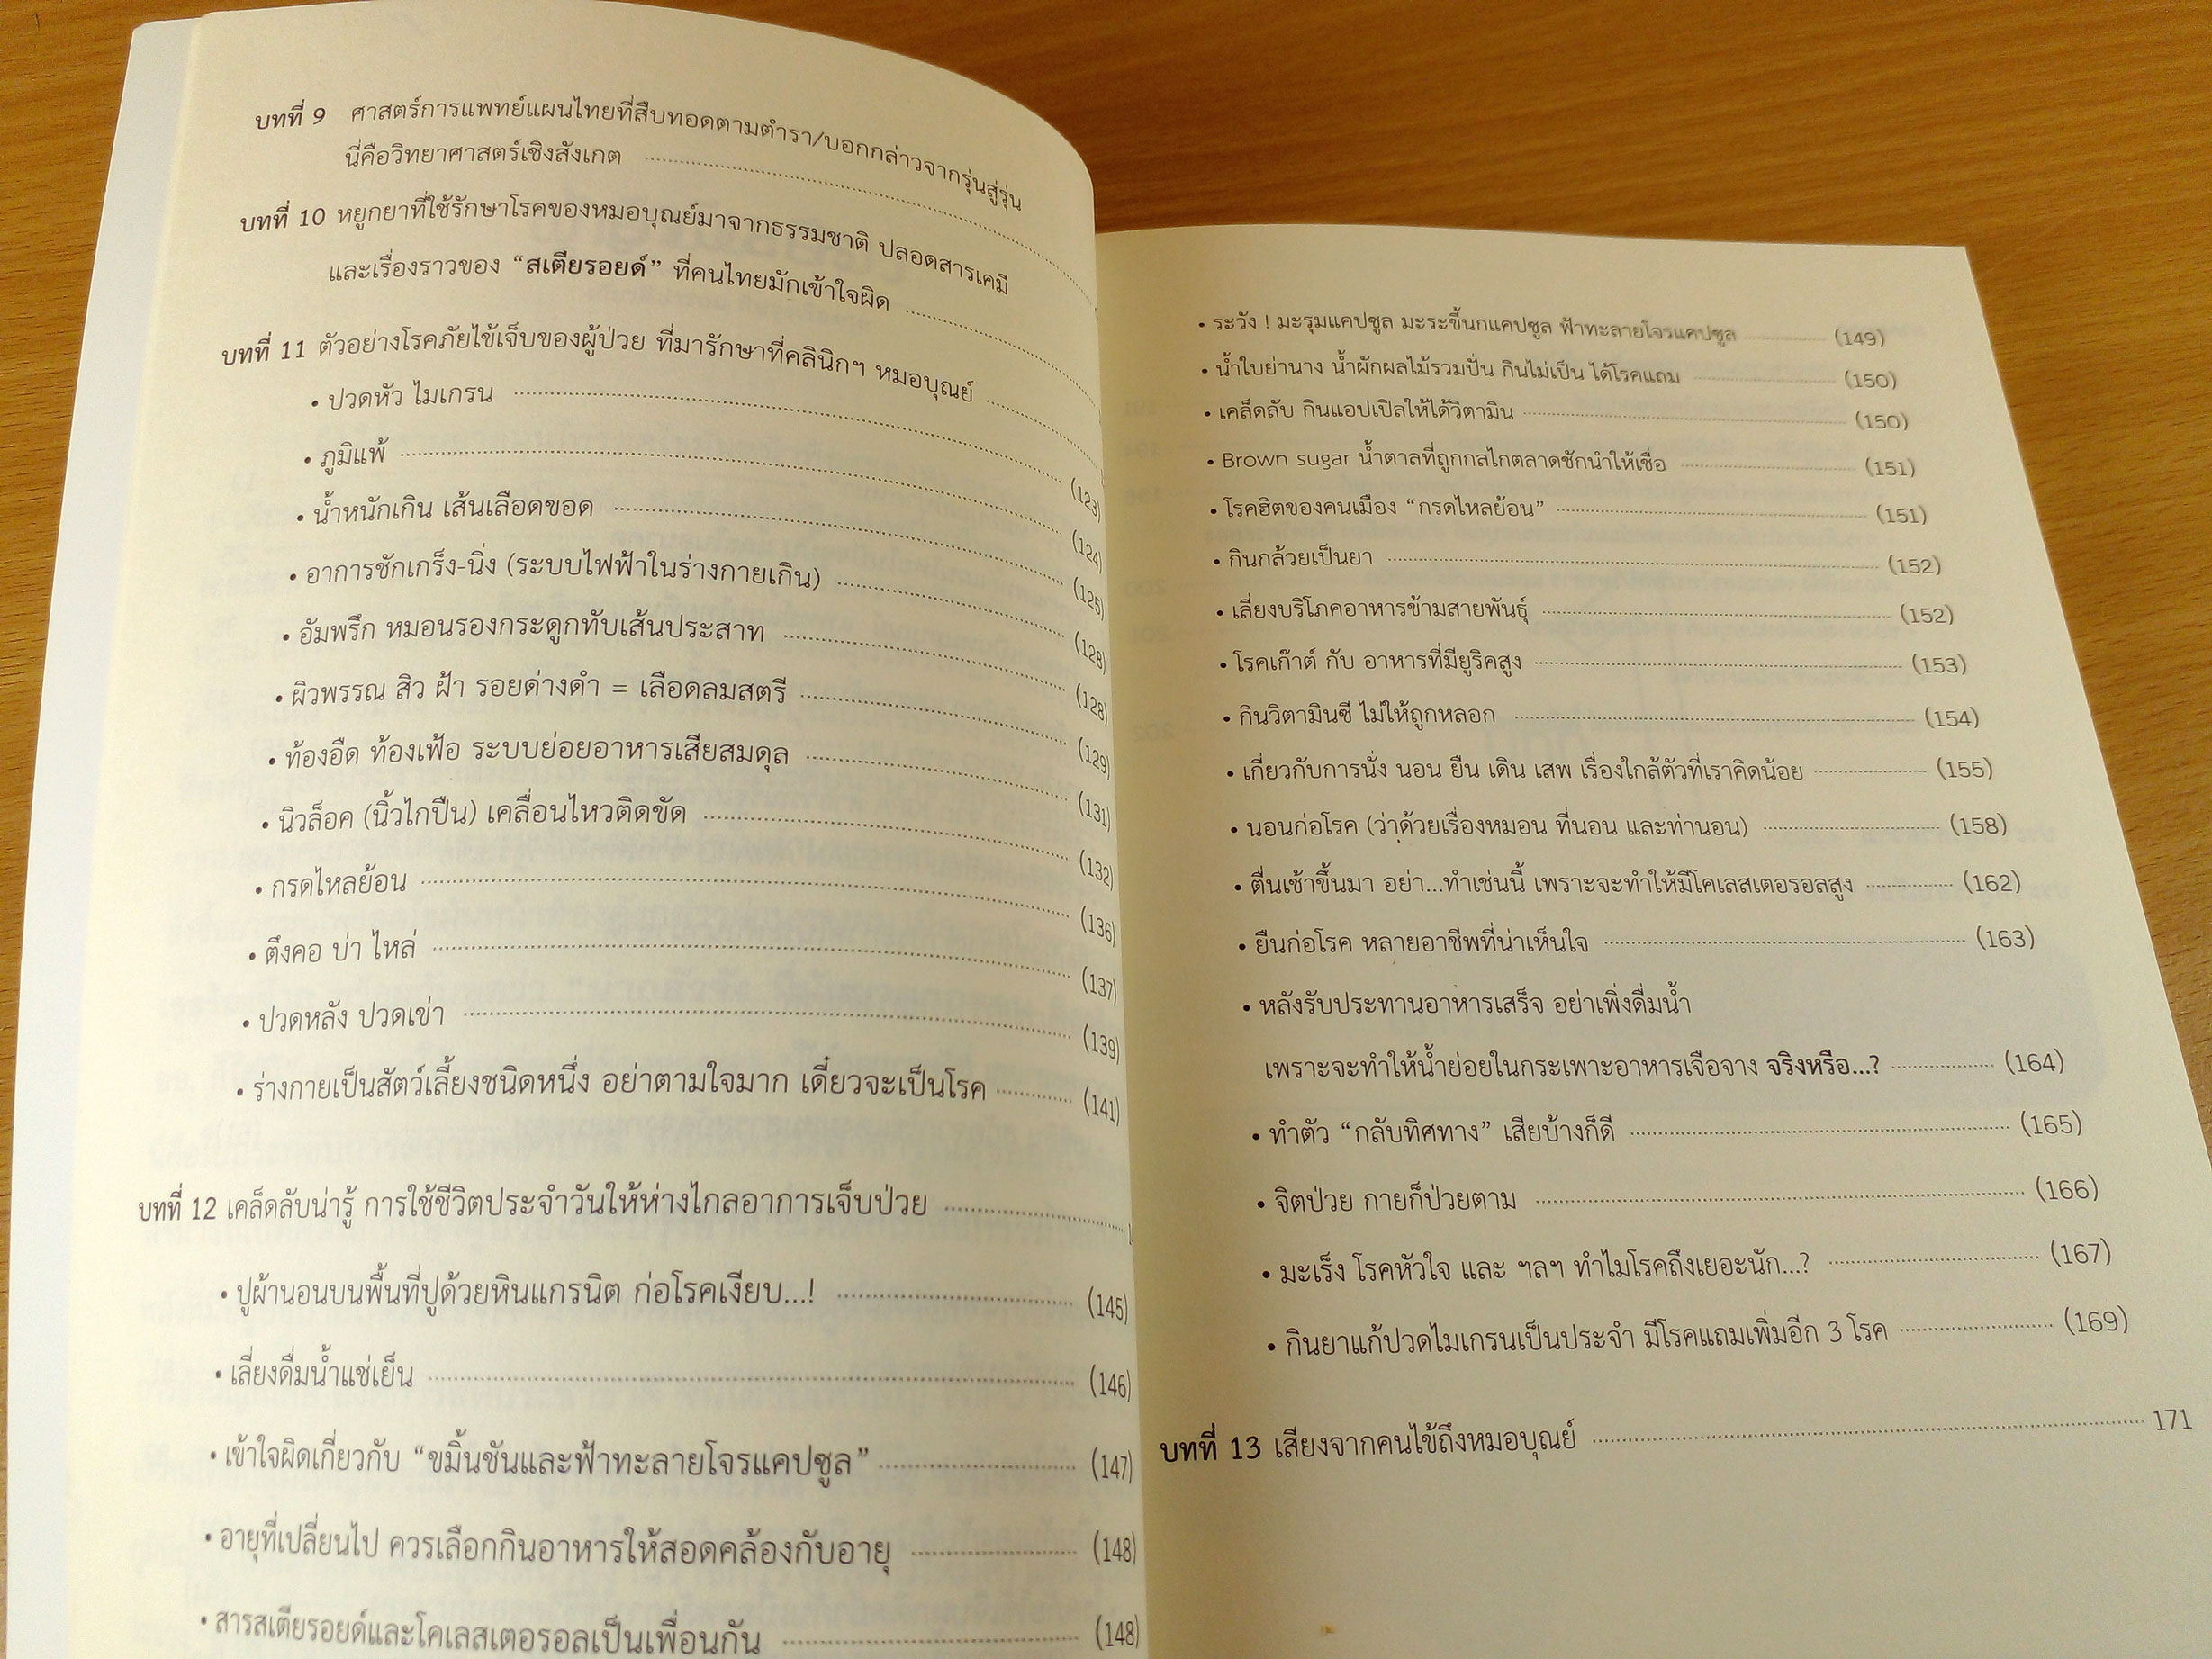 บทที่ 9 ศาสตร์การแพทย์แผนไทยที่สืบทอดตามตำรา/บอกกล่าวจากรุ่นสู่รุ่น
นี่คือวิทยาศาสตร์เชิงสังเกต
บทที่ 10 หยูกยาที่ใช้รักษาโรคของหมอบุณย์มาจากธรรมชาติ ปลอดสารเคมี
และเรื่องราวของ “สเตียรอยด์” ที่คนไทยมักเข้าใจผิด
บทที่ 11 ตัวอย่างโรคภัยไข้เจ็บของผู้ป่วย ที่มารักษาที่คลินิกฯ หมอบุณย์
• ปวดหัว ไมเกรน (123)
• ภูมิแพ้ (124)
• น้ำหนักเกิน เส้นเลือดขอด (125)
• อาการชักเกร็ง-นิ่ง (ระบบไฟฟ้าในร่างกายเกิน) (128)
• อัมพรึก หมอนรองกระดูกทับเส้นประสาท (128)
• ผิวพรรณ สิว ฝ้า รอยด่างดำ = เลือดลมสตรี (129)
• ท้องอืด ท้องเฟ้อ ระบบย่อยอาหารเสียสมดุล (131)
• นิวล็อค (นิ้วไกปืน) เคลื่อนไหวติดขัด (132)
• กรดไหลย้อน (136)
• ตึงคอ บ่า ไหล่ (137)
• ปวดหลัง ปวดเข่า (139)
• ร่างกายเป็นสัตว์เลี้ยงชนิดหนึ่ง อย่าตามใจมาก เดี๋ยวจะเป็นโรค (141)
บทที่ 12 เคล็ดลับน่ารู้ การใช้ชีวิตประจำวันให้ห่างไกลอาการเจ็บป่วย
• ปูผ้านอนบนพื้นที่ปูด้วยหินแกรนิต ก่อโรคเงียบ...! (145)
• เลี่ยงดื่มน้ำแช่เย็น (146)
• เข้าใจผิดเกี่ยวกับ “ขมิ้นชันและฟ้าทะลายโจรแคปซูล” (147)
• อายุที่เปลี่ยนไป ควรเลือกกินอาหารให้สอดคล้องกับอายุ (148)
• สารสเตียรอยด์และโคเลสเตอรอลเป็นเพื่อนกัน (148)
• ระวัง ! มะรุมแคปซูล มะระขี้นกแคปซูล ฟ้าทะลายโจรแคปซูล (149)
• น้ำใบย่านาง น้ำผักผลไม้รวมปั่น กินไม่เป็น ได้โรคแถม (150)
• เคล็ดลับ กินแอปเปิลให้ได้วิตามิน (150)
• Brown sugar น้ำตาลที่ถูกกลไกตลาดชักนำให้เชื่อ (151)
• โรคฮิตของคนเมือง “กรดไหลย้อน” (151)
• กินกล้วยเป็นยา (152)
• เลี่ยงบริโภคอาหารข้ามสายพันธุ์ (152)
• โรคเก๊าต์ กับ อาหารที่มียูริคสูง (153)
• กินวิตามินซี ไม่ให้ถูกหลอก (154)
• เกี่ยวกับการนั่ง นอน ยืน เดิน เสพ เรื่องใกล้ตัวที่เราคิดน้อย (155)
• นอนก่อโรค (ว่าด้วยเรื่องหมอน ที่นอน และท่านอน) (158)
• ตื่นเช้าขึ้นมา อย่า...ทำเช่นนี้ เพราะจะทำให้มีโคเลสเตอรอลสูง (162)
• ยืนก่อโรค หลายอาชีพที่น่าเห็นใจ (163)
• หลังรับประทานอาหารเสร็จ อย่าเพิ่งดื่มน้ำ
เพราะจะทำให้น้ำย่อยในกระเพาะอาหารเจือจาง จริงหรือ...? (164)
• ทำตัว “กลับทิศทาง” เสียบ้างก็ดี (165)
• จิตป่วย กายก็ป่วยตาม (166)
• มะเร็ง โรคหัวใจ และ ฯลฯ ทำไมโรคถึงเยอะนัก...? (167)
• กินยาแก้ปวดไมเกรนเป็นประจำ มีโรคแถมเพิ่มอีก 3 โรค (169)
บทที่ 13 เสียงจากคนไข้ถึงหมอบุณย์ 171